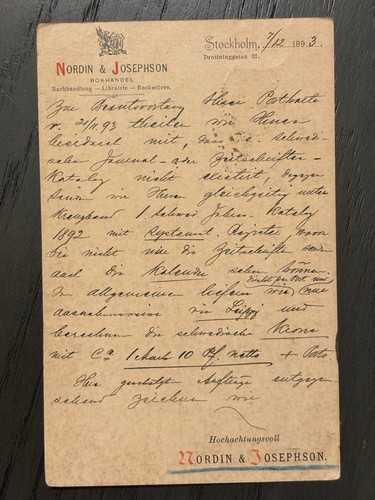 NORDIN & JOSEPHSON
BOKHANDEL
Buchhandlung — Librairie — Booksellers.
Stockholm, 7/12 1893.
Drottninggatan 37.
Zur Beantwortung Ihrer Postkarte
v. 21/11 93 theilen wir Ihnen
mit, dass e. schwedi-
schen Journal- oder Zeitschriften-
Katalog nicht existirt, dagegen
wir Ihnen gleichzeitig unter
Kreuzband 1 Schwed. Jahres Katalog
1892 mit systemat. Register, woraus
Sie nicht nur die Zeitschriften sond.
auch die Kalender sehen können.
direkt per Post nur
Im allgemeinen liefern wir
ausnahmsweise via Leipzig und
berechnen die schwedische Krone
mit Ca 1 Mark 10 Pf. netto + Porto
Ihre geschätzt. Aufträge entgegen-
sehend zeichnen wir
Hochachtungsvoll
NORDIN & JOSEPHSON.